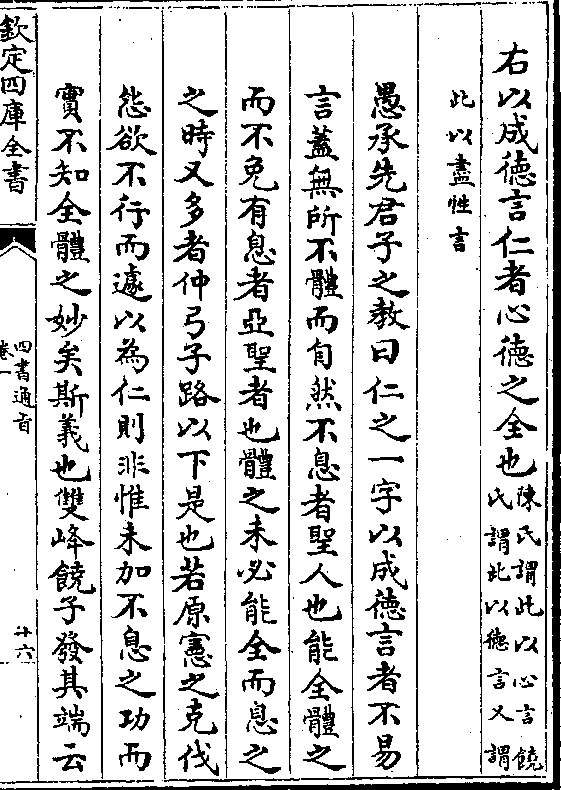 右以成德言仁者心德之全也陳氏謂此以心言饒
氏謂此以德言又謂
此以盡性言
愚承先君子之教曰仁之一字以成德言者不易
言蓋無所不體而自然不息者聖人也能全體之
而不免有息者亞聖者也體之未必能全而息之
之時又多者仲弓子路以下是也若原憲之克伐
怨欲不行而遽以為仁則非惟未加不息之功而
實不知全體之妙矣斯義也雙峰饒子發其端云
欽定四庫全書
四書通旨
卷一
十六